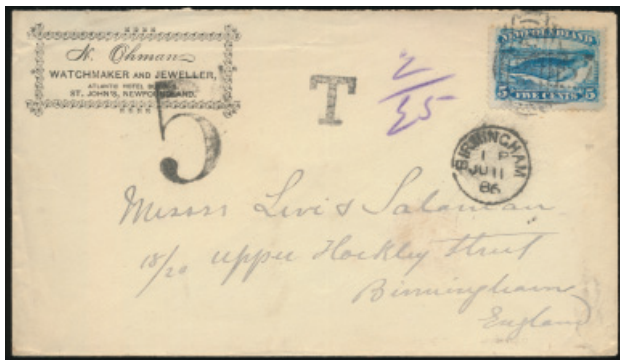 N. Ohman
WATCHMAKER AND JEWELLER,
ATLANTIC HOTEL
ST. JOHN'S, NEWFOUNDLAND.
5
T
2
25
NEWFOUNDLAND
5 FIVE CENTS 5
BIRMINGHAM
1 P
JU 11
86
Messrs Levi & Salaman
18/20 Upper Hockley Street
Birmingham
England